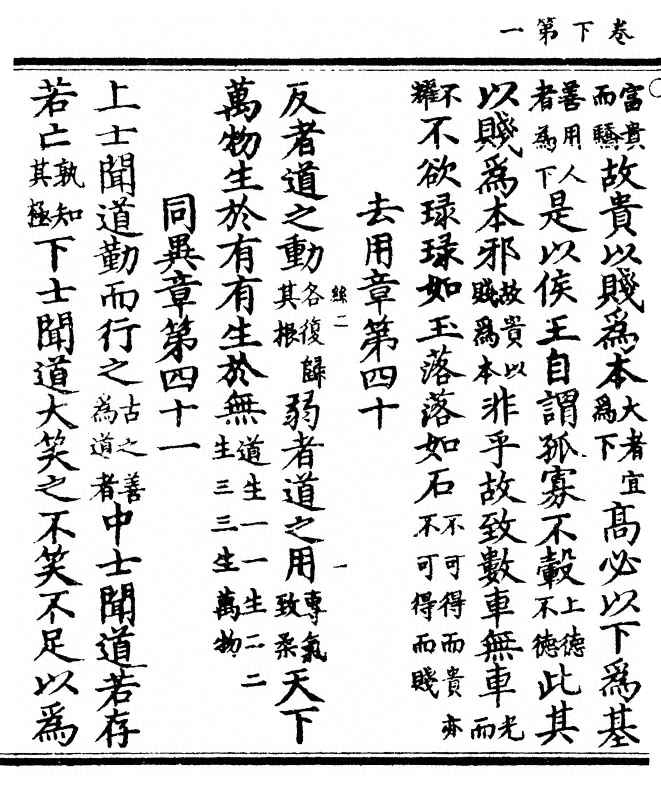 卷下第一
富貴而驕故貴以賤爲本大者宜爲下高必以下爲基
善用人者為下是以侯王自謂孤寡不轂上德不德此其
以賤爲本邪故貴以賤爲本非乎故致數車無車光而
不耀不欲琭琭如玉落落如石不可得而貴亦不可得而賤
去用章第四十
絲二
一
反者道之動各復歸其根弱者道之用專氣致柔天下
萬物生於有有生於無道生一一生二二生三三生萬物
同異章第四十一
上士聞道勤而行之古之善為道者中士聞道若存
若亡孰知其極下士聞道大笑之不笑不足以爲